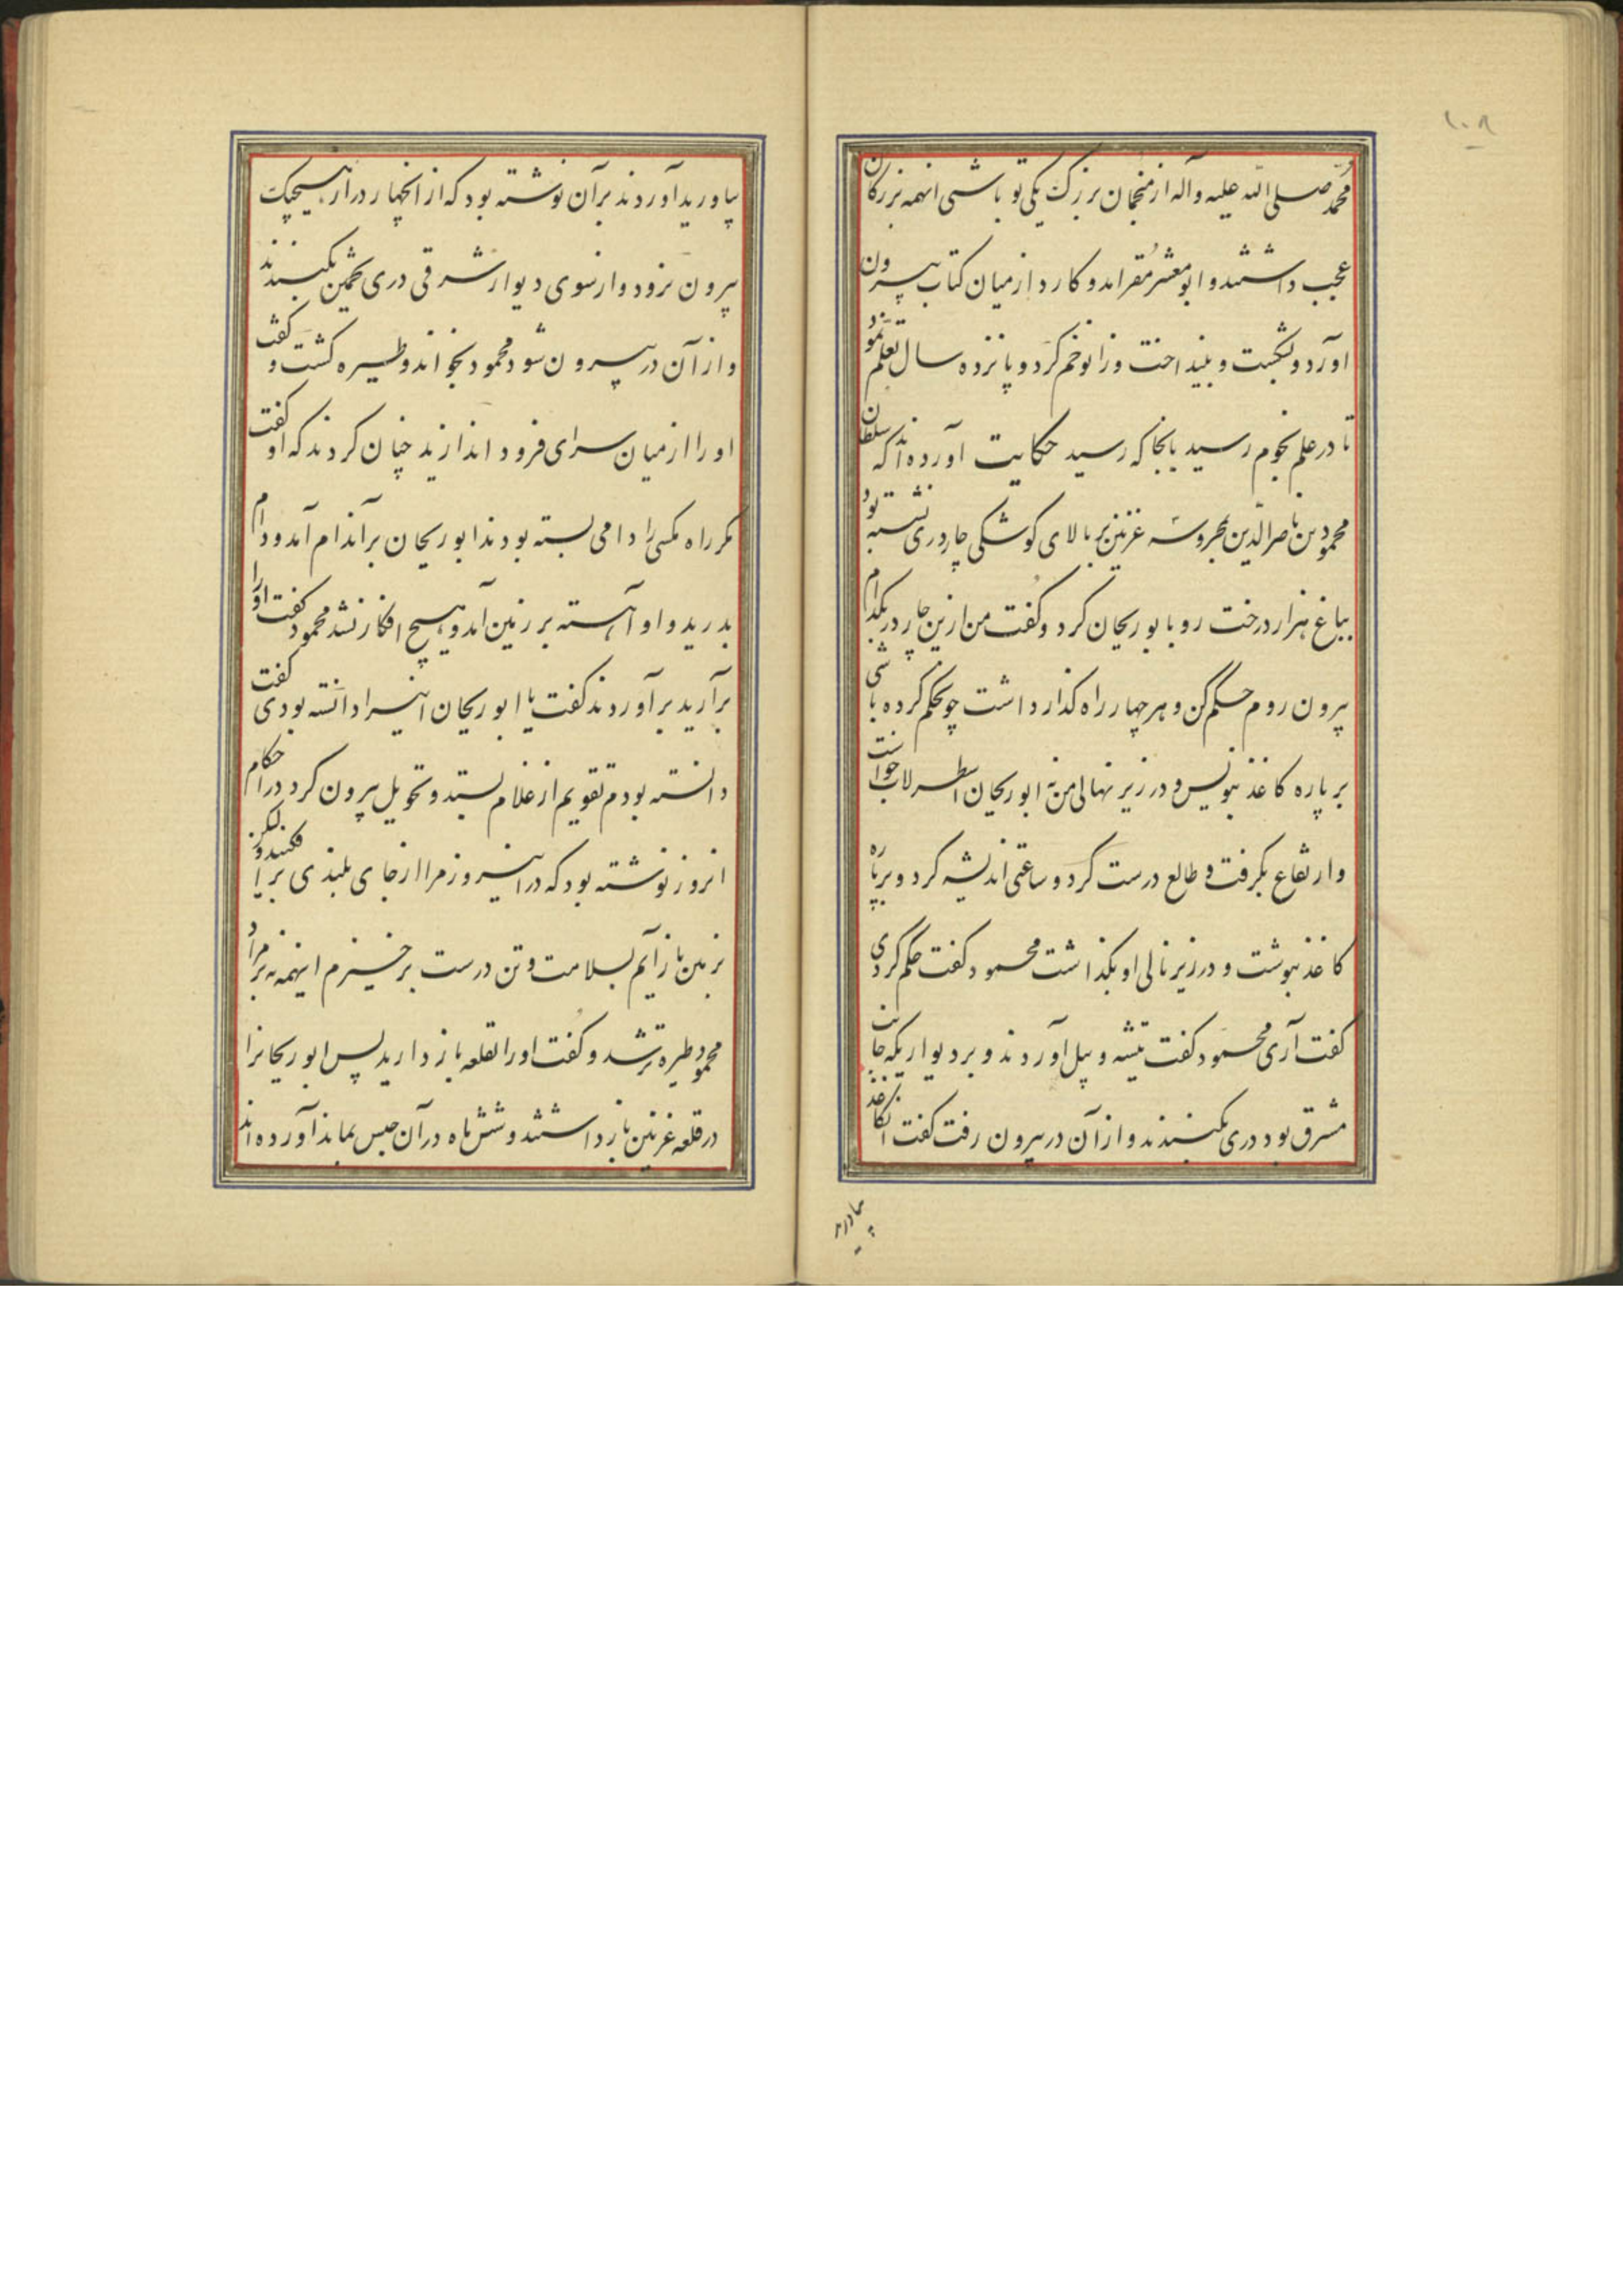 ۱۰۸
محمد صلی الله علیه وآله از منجمان بزرک یکی تو باشی اینهمه بزرکان
عجب داشتند و ابو معشر مُقر امد و کارد از میان کتاب بیرون
اورد و بشکست و بینداخت و زانو خم کرد و پانزده سال تعلّم نمود
تا در علم نجوم رسید بانجا که رسید حکایت آورده اند که سلطان
محمود بن ناصر الدین بمحروسه غزنین بر بالای کوشکی چار دری نشسته بود
بباغ هزار درخت رو بابو ریحان کرد و کفت من ازین چار در بکدام
بیرون روم حکم کن و هر چهار راه کذار داشت چو حکم کرده باشی
بر پاره کاغذ بنویس و در زیر نهالی من نه ابو ریحان اسطرلاب خواست
و ارتفاع بکرفت و طالع درست کرد و ساعتی اندیشه کرد و بر پاره
کاغذ بنوشت و در زیر نالی او بکذاشت محمود کفت حکم کردی
کفت آری محمود کفت تیشه و بیل آوردند و بر دیواریکه جانب
مشرق بود دری بکنیدند و از آن در بیرون رفت کفت انکاغذ
بیاورید
بیاورید آوردند بر آن نوشته بود که از اینچهار در از هیچیک
بیرون نرود و از سوی دیوار شرقی دری همین بکنند
و از آن در بیرون شود محمود بخواند و طیره کشت و کفت
او را از میان سرای فرود اندازید چنان کردند که او کفت
مکر راه مکس را دامی بسته بودند ابو ریحان بر آندام آمد و دام
بدرید و او آهسته بر زمین آمد و هیچ افکار نشد محمود کفت او را
برآرید برآوردند کفت یا ابو ریحان اینرا دانسته بودی کفت
دانسته بودم تقویم از غلام بستد و تحویل بیرون کرد در احکام
انروز نوشته بود که در اینروز مرا از جای بلندی بزیر افکنند ولیکن
بزمین باز آیم بسلامت و تن درست برخیزم اینهمه نه بر مراد
محمود طیره تر شد و کفت اورا بقلعه باز دارید پس ابو ریحانرا
در قلعه غزنین باز داشتند و شش ماه در آن حبس بماند آورده اند